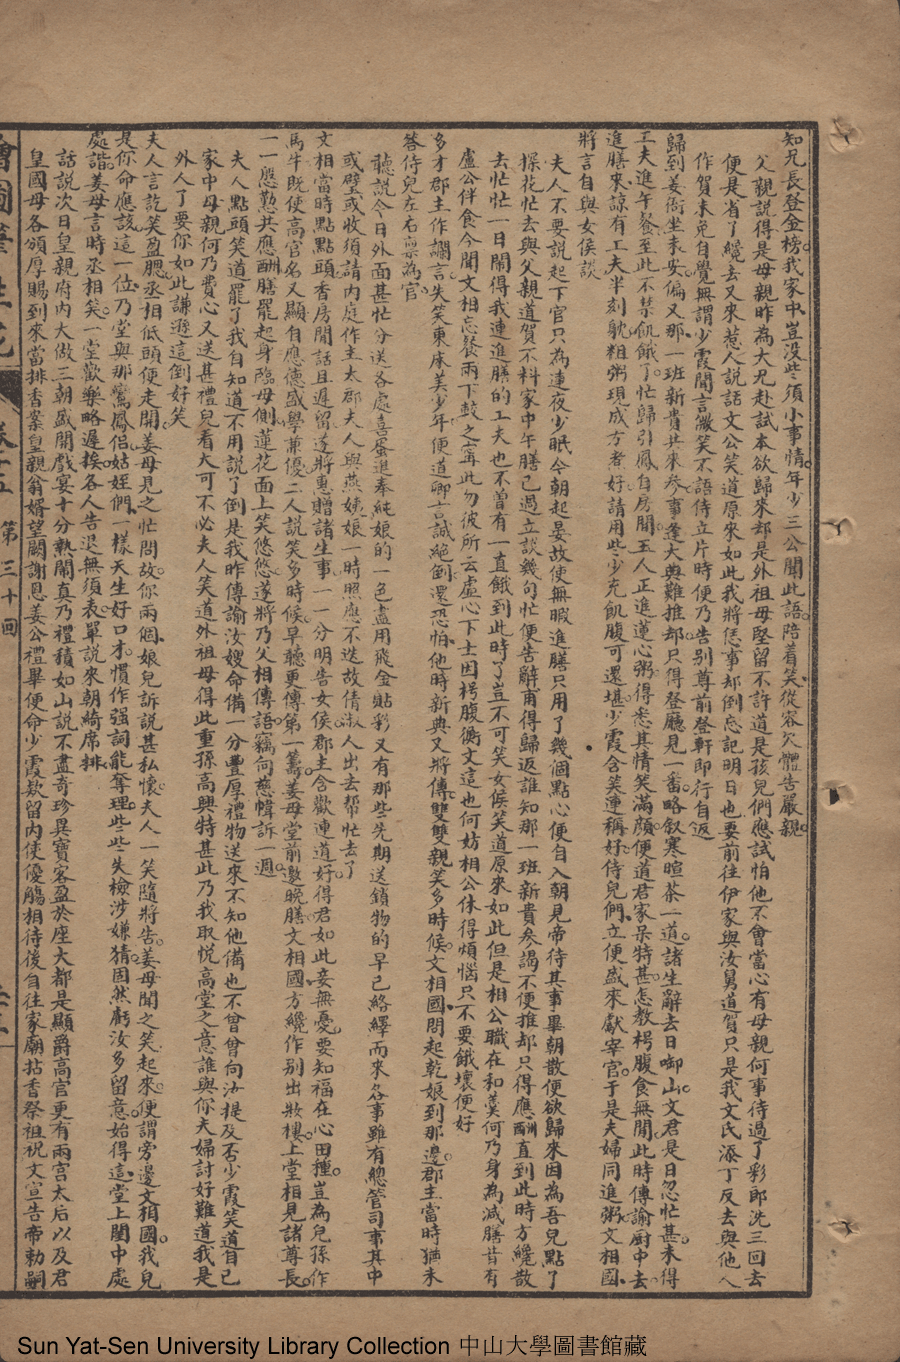 知兄長登金榜我家中豈沒些須小事情年少三公聞此語陪着笑從容欠體告嚴親
父親說得是母親昨為大尹赴試本欲歸來却是外祖母堅留不許道是孩兒們應試怕他不會當心有母親何事待過了彩郎洗三回去
便是省了纔去又來惹人說話文公笑道原來如此我將恁事却倒忘記明日也要前往伊家與汝舅道賀只是我文氏添丁反去與他人
作賀未免自覺無謂少霞聞言微笑不語侍立片時便乃告別尊前登軒即行自返
歸到姜衙坐未安偏又那一班新貴共來參事逢大典難推却只得登廳見一番略叙寒暄茶一道諸生辭去日啣山文君是日忽忙甚未得
工夫進午餐至此不禁飢餓了忙歸引鳳自房間玉人正進蓮心粥得悉其情笑滿顏便道君家呆特甚怎教枵腹食無間此時傳諭廚中去
進膳來諒有工夫半刻躭粗粥現成方煮好請用些少充飢腹可還堪少霞含笑連稱好侍兒們立便盛來獻宰官于是夫婦同進粥文相國
將言自與女侯談
夫人不要說起下官只為連夜少眠今朝起晏故使無暇進膳只用了幾個點心便自入朝見帝待其事畢朝散便欲歸來因為吾兒點了
探花忙去與父親道賀不料家中午膳已過立談幾句忙便告辭甫得歸返誰知那一班新貴參謁不便推却只得應酬直到此時方纔散
去忙忙一日鬧得我連進膳的工夫也不曾有一直餓到此時了豈不可笑女侯笑道原來如此但是相公職在和羹何乃身為減膳昔有
盧公伴食今聞文相忘餐兩下較之寗此勿彼所云虛心下士因枵腹衡文這也何妨相公休得煩惱只不要餓壞便好
多才郡主作讕言失笑東床美少年便道卿言誠絕倒還恐怕他時新典又將傳雙雙親笑多時候文相國問起乾娘到那邊郡主當時猶未
答侍兒左右稟為官
聽說今日外面甚忙分送各處喜蛋進奉純娘的一色盡用飛金貼彩又有那些先期送鎖物的早已絡繹而來各事雖有總管司事其中
或璧或收須請內庭作主太郡夫人與燕姨娘一時照應不迭故倩淑人出去帮忙去了
文相當時點點頭香房閒話且遲留遂將惠贈諸生事一一分明告女侯郡主含歡連道好得君如此妾無憂要知福在心田種豈為兒孫作
馬牛既使高官名又顯自應德盛學兼優二人說笑多時候早聽更傳第一籌姜母堂前邀晚膳文相國方纔作別出妝樓上堂相見諸尊長
一一慇懃共應酬膳罷起身臨母側蓮花面上笑悠悠遂將乃父相傳語竊向慈幃訴一週
夫人點頭笑道罷了我自知道不用說了倒是我昨傳諭汝嫂命備一分豐厚禮物送來不知他備也不曾曾向汝提及否少霞笑道自己
家中母親何乃費心又送甚禮兒看大可不必夫人笑道外祖母得此重孫高興特甚此乃我取悅高堂之意誰與你夫婦討好難道我是
外人了要你如此謙遜這倒好笑
夫人言訖笑盈腮丞相低頭便走開姜母見之忙問故你兩個娘兒訴說甚私懷夫人一笑隨將告姜母聞之笑起來便謂旁邊文相國我兒
是你命應該這一位乃堂與那鸞鳳侶姑姪們一樣天生好口才慣作强詞能奪理些些失檢涉嫌猜固然虧汝多留意始得這堂上閨中處
處諧姜母言時丞相笑一堂歡樂略遲挨各人告退無須表單說來朝綺席排
話說次日皇親府內大做三朝盛開戲宴十分熱鬧真乃禮積如山說不盡奇珍異寶客盈於座大都是顯爵高官更有兩宮太后以及君
皇國母各頒厚賜到來當排香案皇親翁婿望闕謝恩姜公禮畢便命少霞欵留內使優觴相待後自往家廟拈香祭祖祝文宣告帝勅嗣
繪圖筆生花 卷十五 第三十回